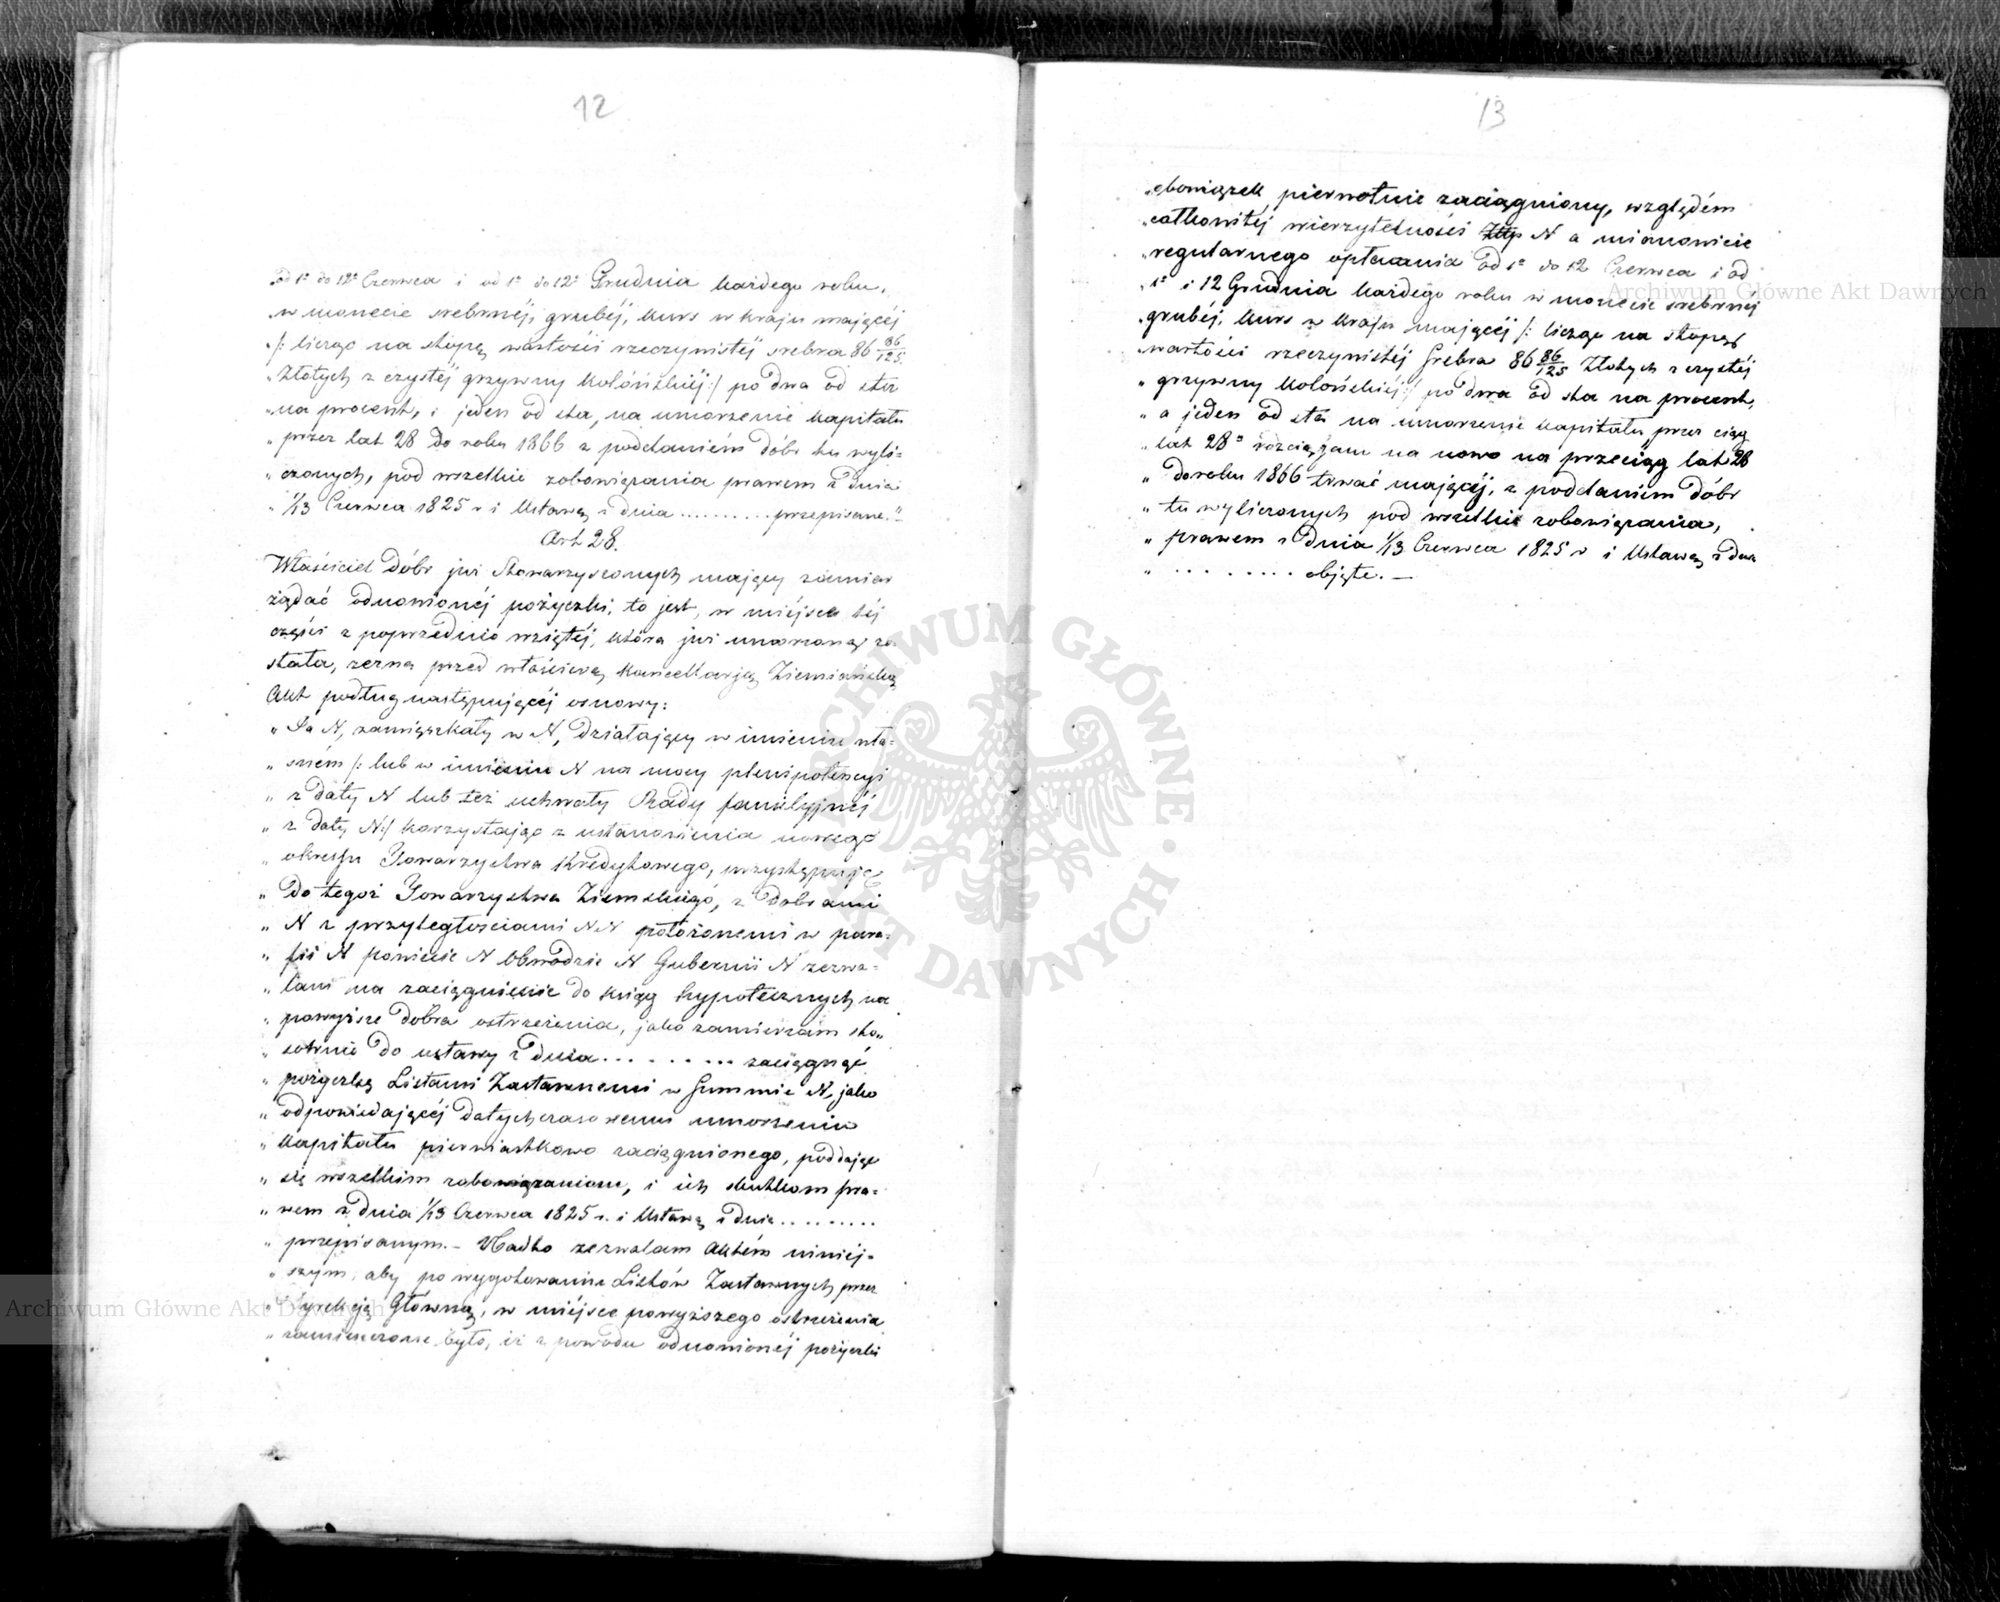 12
„od 1° do 12° Czerwca i od 1° do 12° Grudnia każdego roku,
„w monecie srebrnéj, grubéj, kurs w kraju mającéj
„/: licząc na stopę wartości rzeczywistéj srebra 86 86/125
„Złotych z czystéj grzywny Kolońskiéj :/ po dwa od sta
„na procent, i jeden od sta, na umorzenie kapitału
„przez lat 28 do roku 1866 z poddaniem dóbr tu wyli=
„czonych, pod wszelkie zobowiązania prawem z dnia
„1/13 Czerwca 1825 r i Ustawą z dnia .......... przepisane."–
Art 28.
Właściciel Dóbr już Stowarzyszonych mający zamiar
żądać odnowionéj pożyczki, to jest, w miéjsce téj
części z poprzednio wziętéj, która już umorzoną zo=
stała, zezna przed właściwą Kancellarją Ziemiańską
Akt podług następującéj osnowy:
„Ja N, zamięszkały w N, działający w imieniu wła=
„sném /: lub w imieniu N na mocy plenipotencyi
„z daty N lub też uchwały Rady familyjnéj
„z daty N :/ korzystając z ustanowienia nowego
„okresu Towarzystwa Kredytowego, przystępuję
„Do tegoż Towarzystwa Ziemskiego, z Dobrami
„N z przyległosciami N.N położonemi w para=
„fii N powiecie N Obwodzie N Gubernii N zezwa=
„lam na zaciągnienie do ksiąg hypotecznych na
„powyższe dobra ostrzeżenia, jako zamierzam sto=
„sownie do ustawy z dnia ......... zaciągnąć
„pożyczkę Listami Zastawnemi w Summie N, jako
„odpowiedającéj dotychczasowemu umorzeniu
„kapitału pierwiastkowo zaciągnionego, poddając
„się wszelkim zobowiązaniom, i ich skutkom pra=
„wem z dnia 1/13 Czerwca 1825 r. i Ustawą z dnia .........
„przepisanym.– Nadto zezwalam Aktém niniéj=
„szym, aby po wygotowaniu Listów Zastawnych przez
„Dyrekcją Główną, w miéjsce powyższego ostrzeżenia
„zamieszczone było, iż z powodu odnowionéj pożyczki
13
„obowiązek, pierwotnie zaciągniony, względém
„całkowitéj wierzytelności Złtp N a mianowicie
„regularnego opłacania od 1° do 12 Czerwca i od
„1° i 12 Grudnia każdego roku w monecie srebrnéj
„grubéj, kurs w kraju mającéj /: licząc na stopę
„wartości rzeczywistéj Srebra 86 86/125 Złotych z czystéj
„grzywny Kolońskiéj :/ po dwa od sta na procent,
„a jeden od sta na umorzenie kapitału przez ciąg
„lat 28° rozciągam na nowo na przeciąg lat 28
„do roku 1866 trwać mającéj, z poddaniem Dóbr
„tu wyliczonych pod wszelkie zobowiązania,
„prawem z Dnia 1/13 Czerwca 1825 r i Ustawą z Dnia
„......... objęte.–
Archiwum Główne Akt Dawnych
Archiwum Główne Akt Dawnych
ARCHIWUM GŁÓWNE · AKT DAWNYCH ·